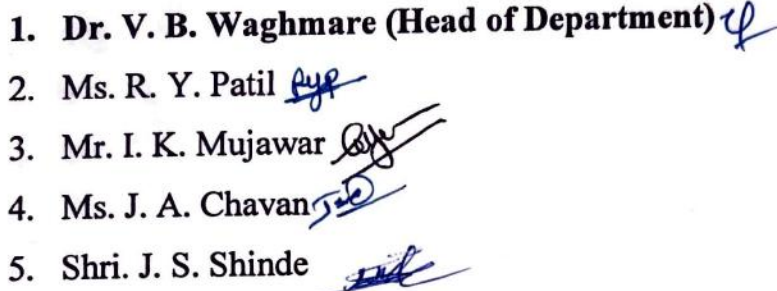 1. Dr. V. B. Waghmare (Head of Department)
2. Ms. R. Y. Patil
3. Mr. I. K. Mujawar
4. Ms. J. A. Chavan
5. Shri. J. S. Shinde